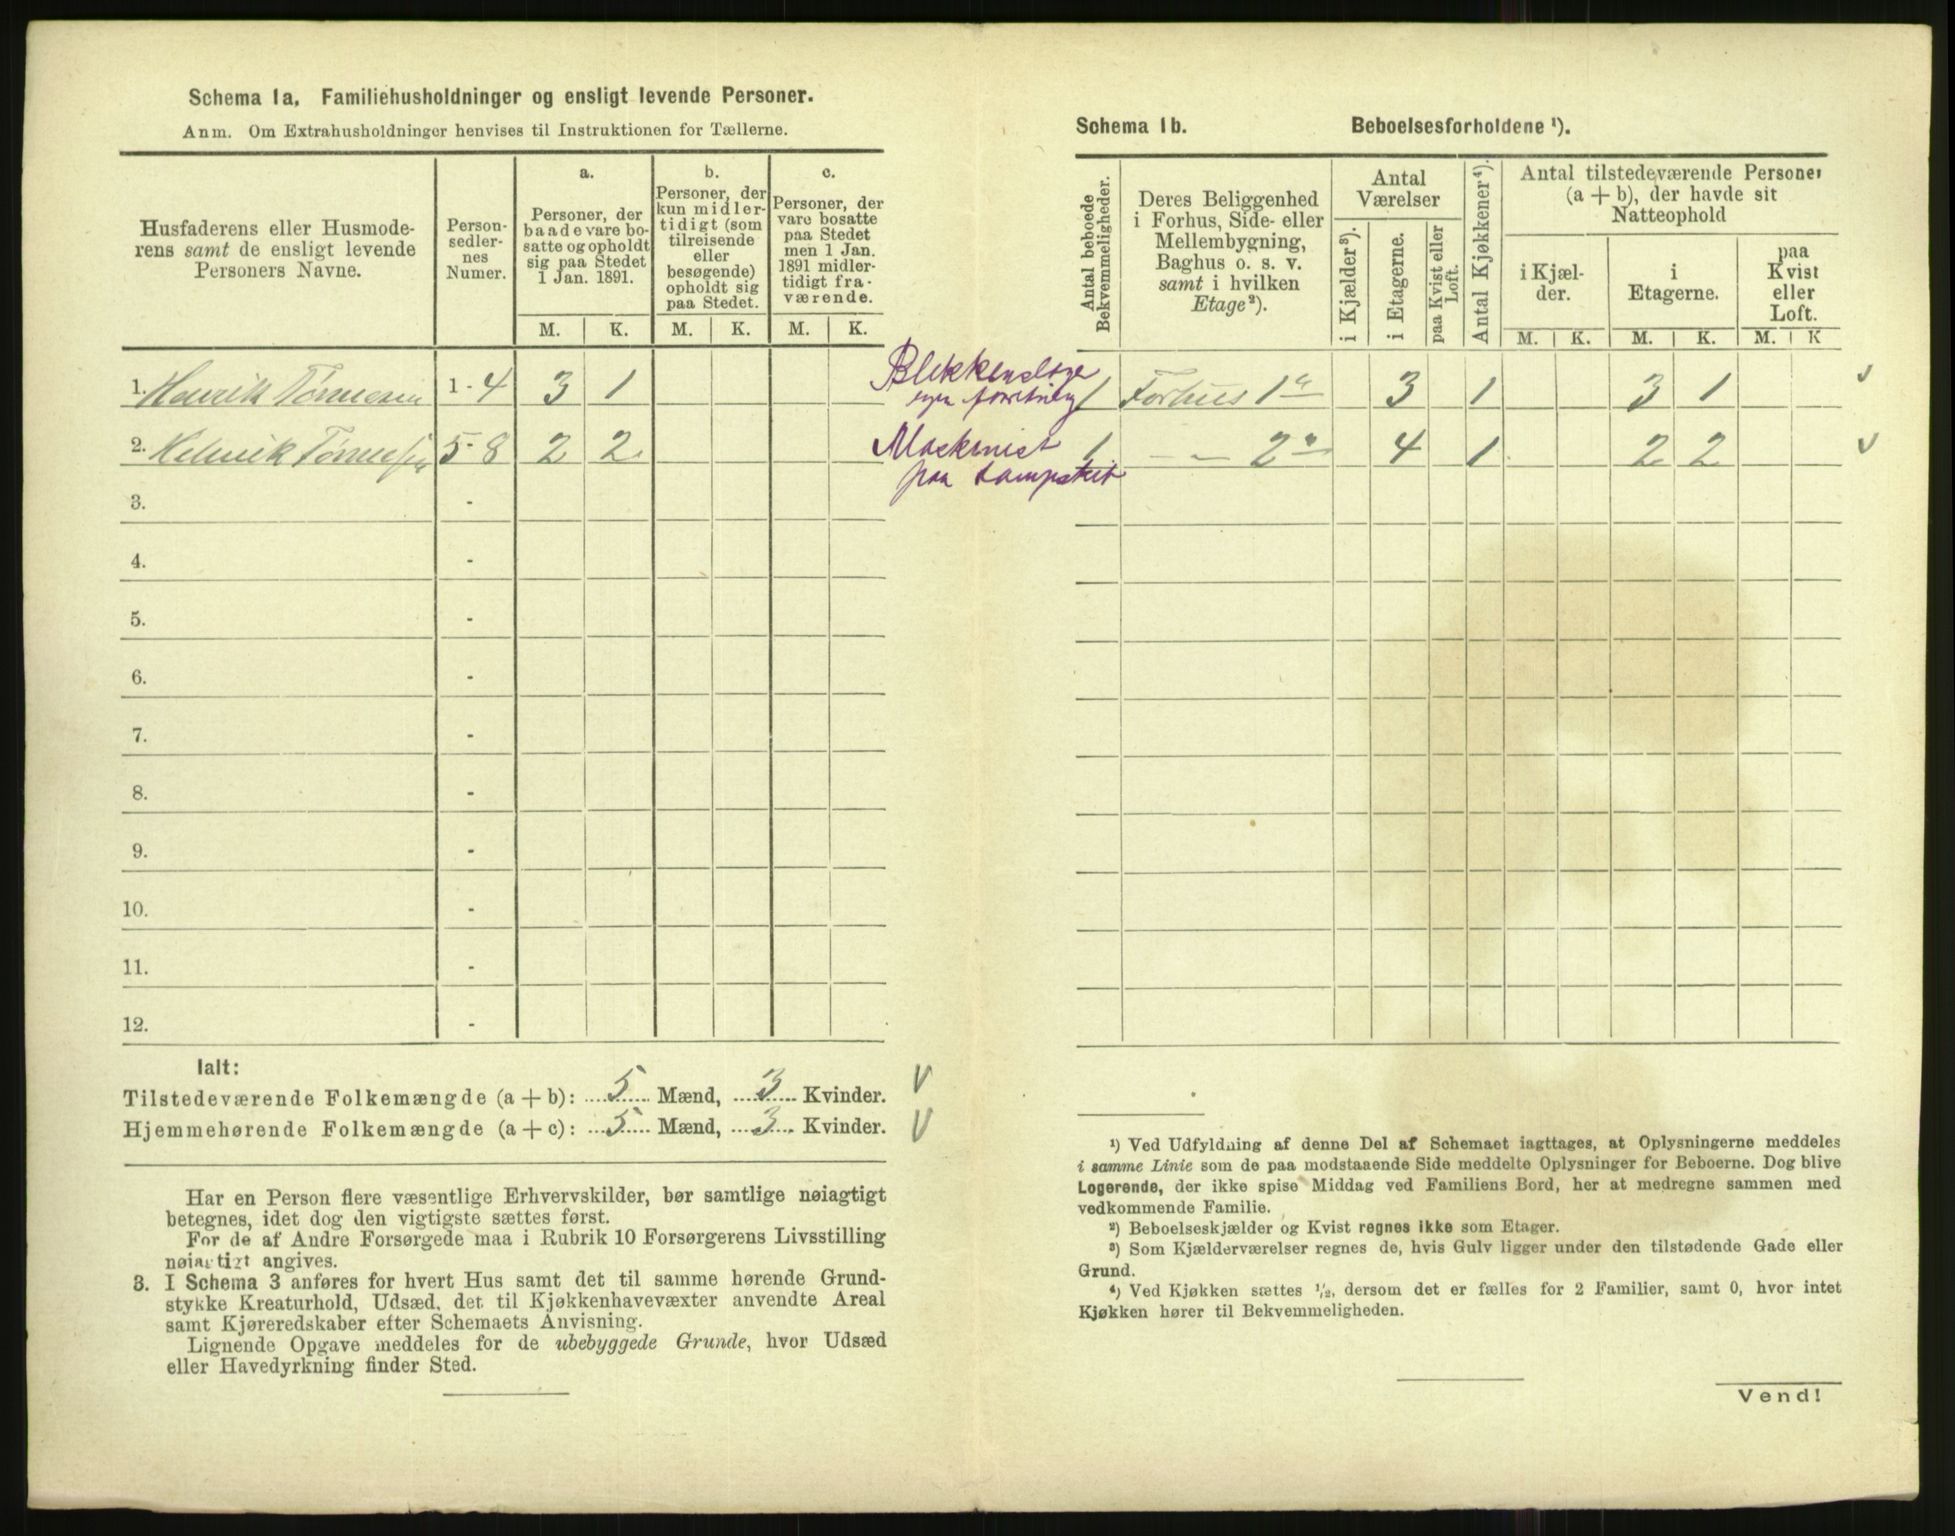 Schema 1a. Familiehusholdninger og ensligt levende Personer.
Anm. Om Extrahusholdninger henvises til Instruktionen for Tællerne.
Husfaderens eller Husmode-
rens samt de ensligt levende
Personers Navne.
Person-
sedler-
nes
Numer.
a.
Personer, der
baade vare bo-
satte og opholdt
sig paa Stedet
1 Jan. 1891.
b.
Personer, der
kun midler-
tidigt (som
tilreisende
eller
besøgende)
opholdt sig
paa Stedet.
c.
Personer, der
vare bosatte
paa Stedet
men 1 Jan.
1891 midler-
tidigt fra-
værende.
M. K. M. K. M. K.
1. Henrik 1-4 3 1
2. Henrik 5-8 2 2
3. -
4. -
5. -
6. -
7. -
8. -
9. -
10. -
11. -
12. -
Ialt:
Tilstedeværende Folkemængde (a + b): 5 Mænd, 3 Kvinder. V
Hjemmehørende Folkemængde (a + c): 5 Mænd, 3 Kvinder. V
Har en Person flere væsentlige Erhvervskilder, bør samtlige nøiagtigt
betegnes, idet dog den vigtigste sættes først.
For de af Andre Forsørgede maa i Rubrik 10 Forsørgerens Livsstilling
nøiagtigt angives.
3. I Schema 3 anføres for hvert Hus samt det til samme hørende Grund-
stykke Kreaturhold, Udsæd, det til Kjøkkenhavevæxter anvendte Areal
samt Kjøreredskaber efter Schemaets Anvisning.
Lignende Opgave meddeles for de ubebyggede Grunde, hvor Udsæd
eller Havedyrkning finder Sted.
Schema 1b. Beboelsesforholdene ¹).
Antal beboede
Bekvemmeligheder.
Deres Beliggenhed
i Forhus, Side- eller
Mellembygning,
Baghus o. s. v.
samt i hvilken
Etage²).
Antal
Værelser
i Kjælder³).
i Etagerne.
paa Kvist eller
Loft.
Antal Kjøkkener⁴).
Antal tilstedeværende Personer
(a + b), der havde sit
Natteophold
i Kjæl-
der.
i
Etagerne.
paa
Kvist
eller
Loft.
M. K. M. K. M. K
Blikkenslager
egen forretning
1 Forhus 1e 3 1 3 1 v
Maskinist
paa Dampskib
1 - - 2" 4 1 2 2 v
¹) Ved Udfyldning af denne Del af Schemaet iagttages, at Oplysningerne meddeles
i samme Linie som de paa modstaaende Side meddelte Oplysninger for Beboerne. Dog blive
Logerende, der ikke spise Middag ved Familiens Bord, her at medregne sammen med
vedkommende Familie.
²) Beboelseskjælder og Kvist regnes ikke som Etager.
³) Som Kjælderværelser regnes de, hvis Gulv ligger under den tilstødende Gade eller
Grund.
⁴) Ved Kjøkken sættes ½, dersom det er fælles for 2 Familier, samt 0, hvor intet
Kjøkken hører til Bekvemmeligheden.
Vend!